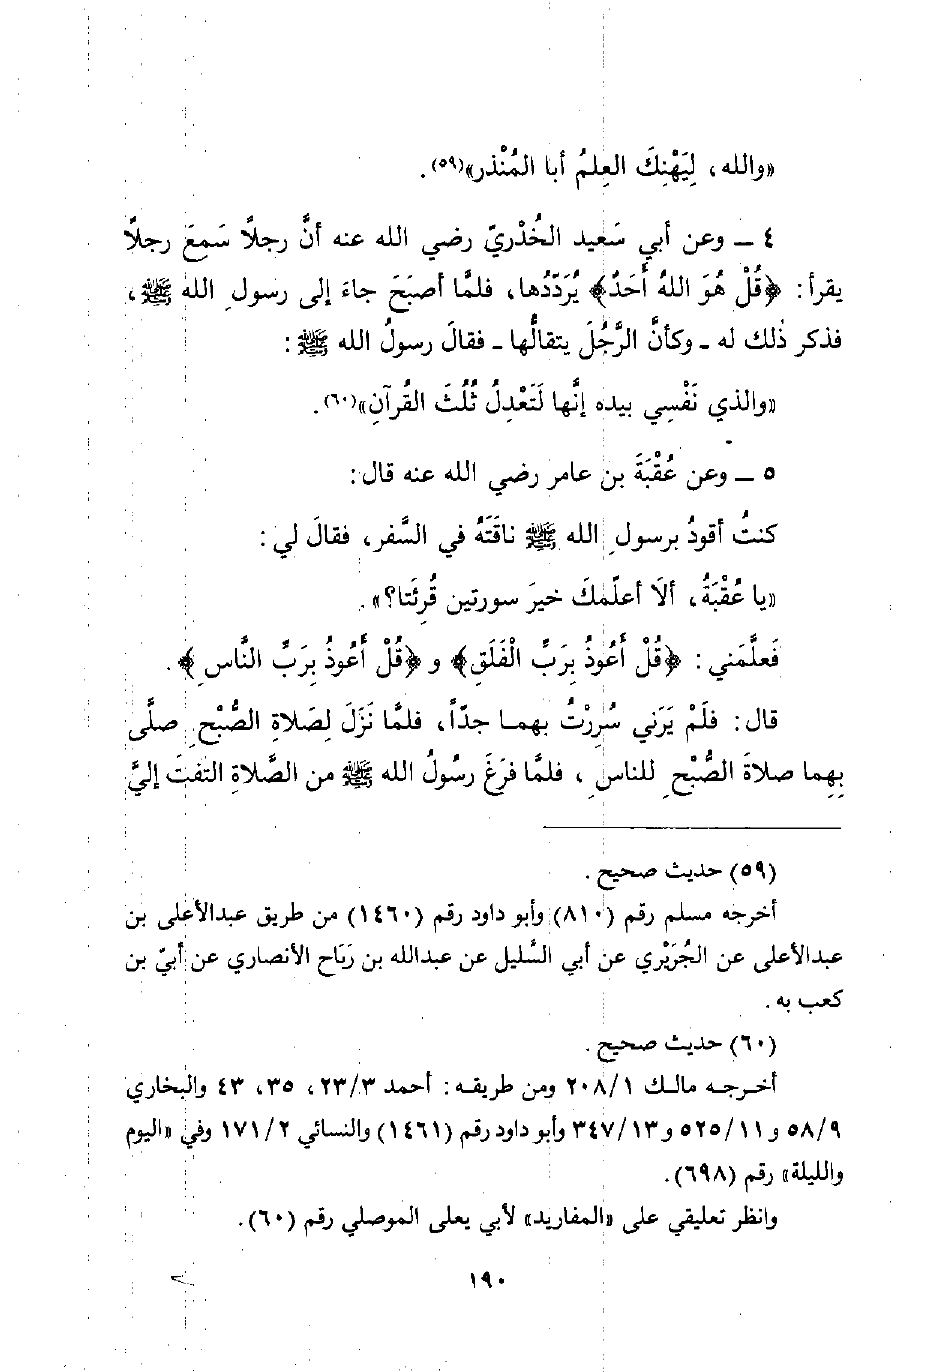 «والله، لِيَهْنِكَ العِلمُ أبا المُنْذر»(٥٩).
٤ ــ وعن أبي سَعيد الخُدْريّ رضي الله عنه أنَّ رجلًا سَمعَ رجلًا
يقرأ: ﴿قُلْ هُوَ اللهُ أَحَدٌ﴾ يُرَدّدُها، فلمَّا أصبَحَ جاءَ إلى رسولِ الله ﷺ،
فذكر ذُلك له ـ وكأنَّ الرَّجُلَ يتقالُّها ـ فقالَ رسولُ الله ﷺ:
«والذي نَفْسِي بيده إنَّها لَتَعْدِلُ ثُلُثَ القُرآنِ»(٦٠).
٥ ــ وعن عُقْبَةَ بن عامر رضي الله عنه قال:
كنتُ أقودُ برسولِ الله ﷺ ناقَتَهُ في السَّفر، فقالَ لي:
«يا عُقْبَةُ، ألَا أعلّمكَ خيرَ سورتين قُرِئَتا؟».
فَعلَّمَني: ﴿قُلْ أَعُوذُ بِرَبِّ الْفَلَقِ﴾ و ﴿قُلْ أَعُوذُ بِرَبِّ النَّاسِ﴾.
قال: فلَمْ يَرَني سُرِرْتُ بهما جدّاً، فلمَّا نَزَلَ لِصَلاةِ الصُّبْحِ صلَّى
بِهِما صلاةَ الصُّبْحِ للناسِ، فلمَّا فرَغَ رسُولُ الله ﷺ من الصَّلاةِ التفتَ إليَّ
(٥٩) حديث صحيح.
أخرجه مسلم رقم (٨١٠) وأبو داود رقم (١٤٦٠) من طريق عبدالأعلى بن
عبدالأعلى عن الجُرَيْري عن أبي السَّليل عن عبدالله بن رَبَاح الأنصاري عن أبيّ بن
كعب به.
(٦٠) حديث صحيح.
أخرجه مالك ٢٠٨/١ ومن طريقه: أحمد ٢٣/٣، ٣٥، ٤٣ والبخاري
٥٨/٩ و٥٢٥/١١ و٣٤٧/١٣ وأبو داود رقم (١٤٦١) والنسائي ١٧١/٢ وفي «اليوم
والليلة» رقم (٦٩٨).
وانظر تعليقي على «المفاريد» لأبي يعلى الموصلي رقم (٦٠).
١٩٠